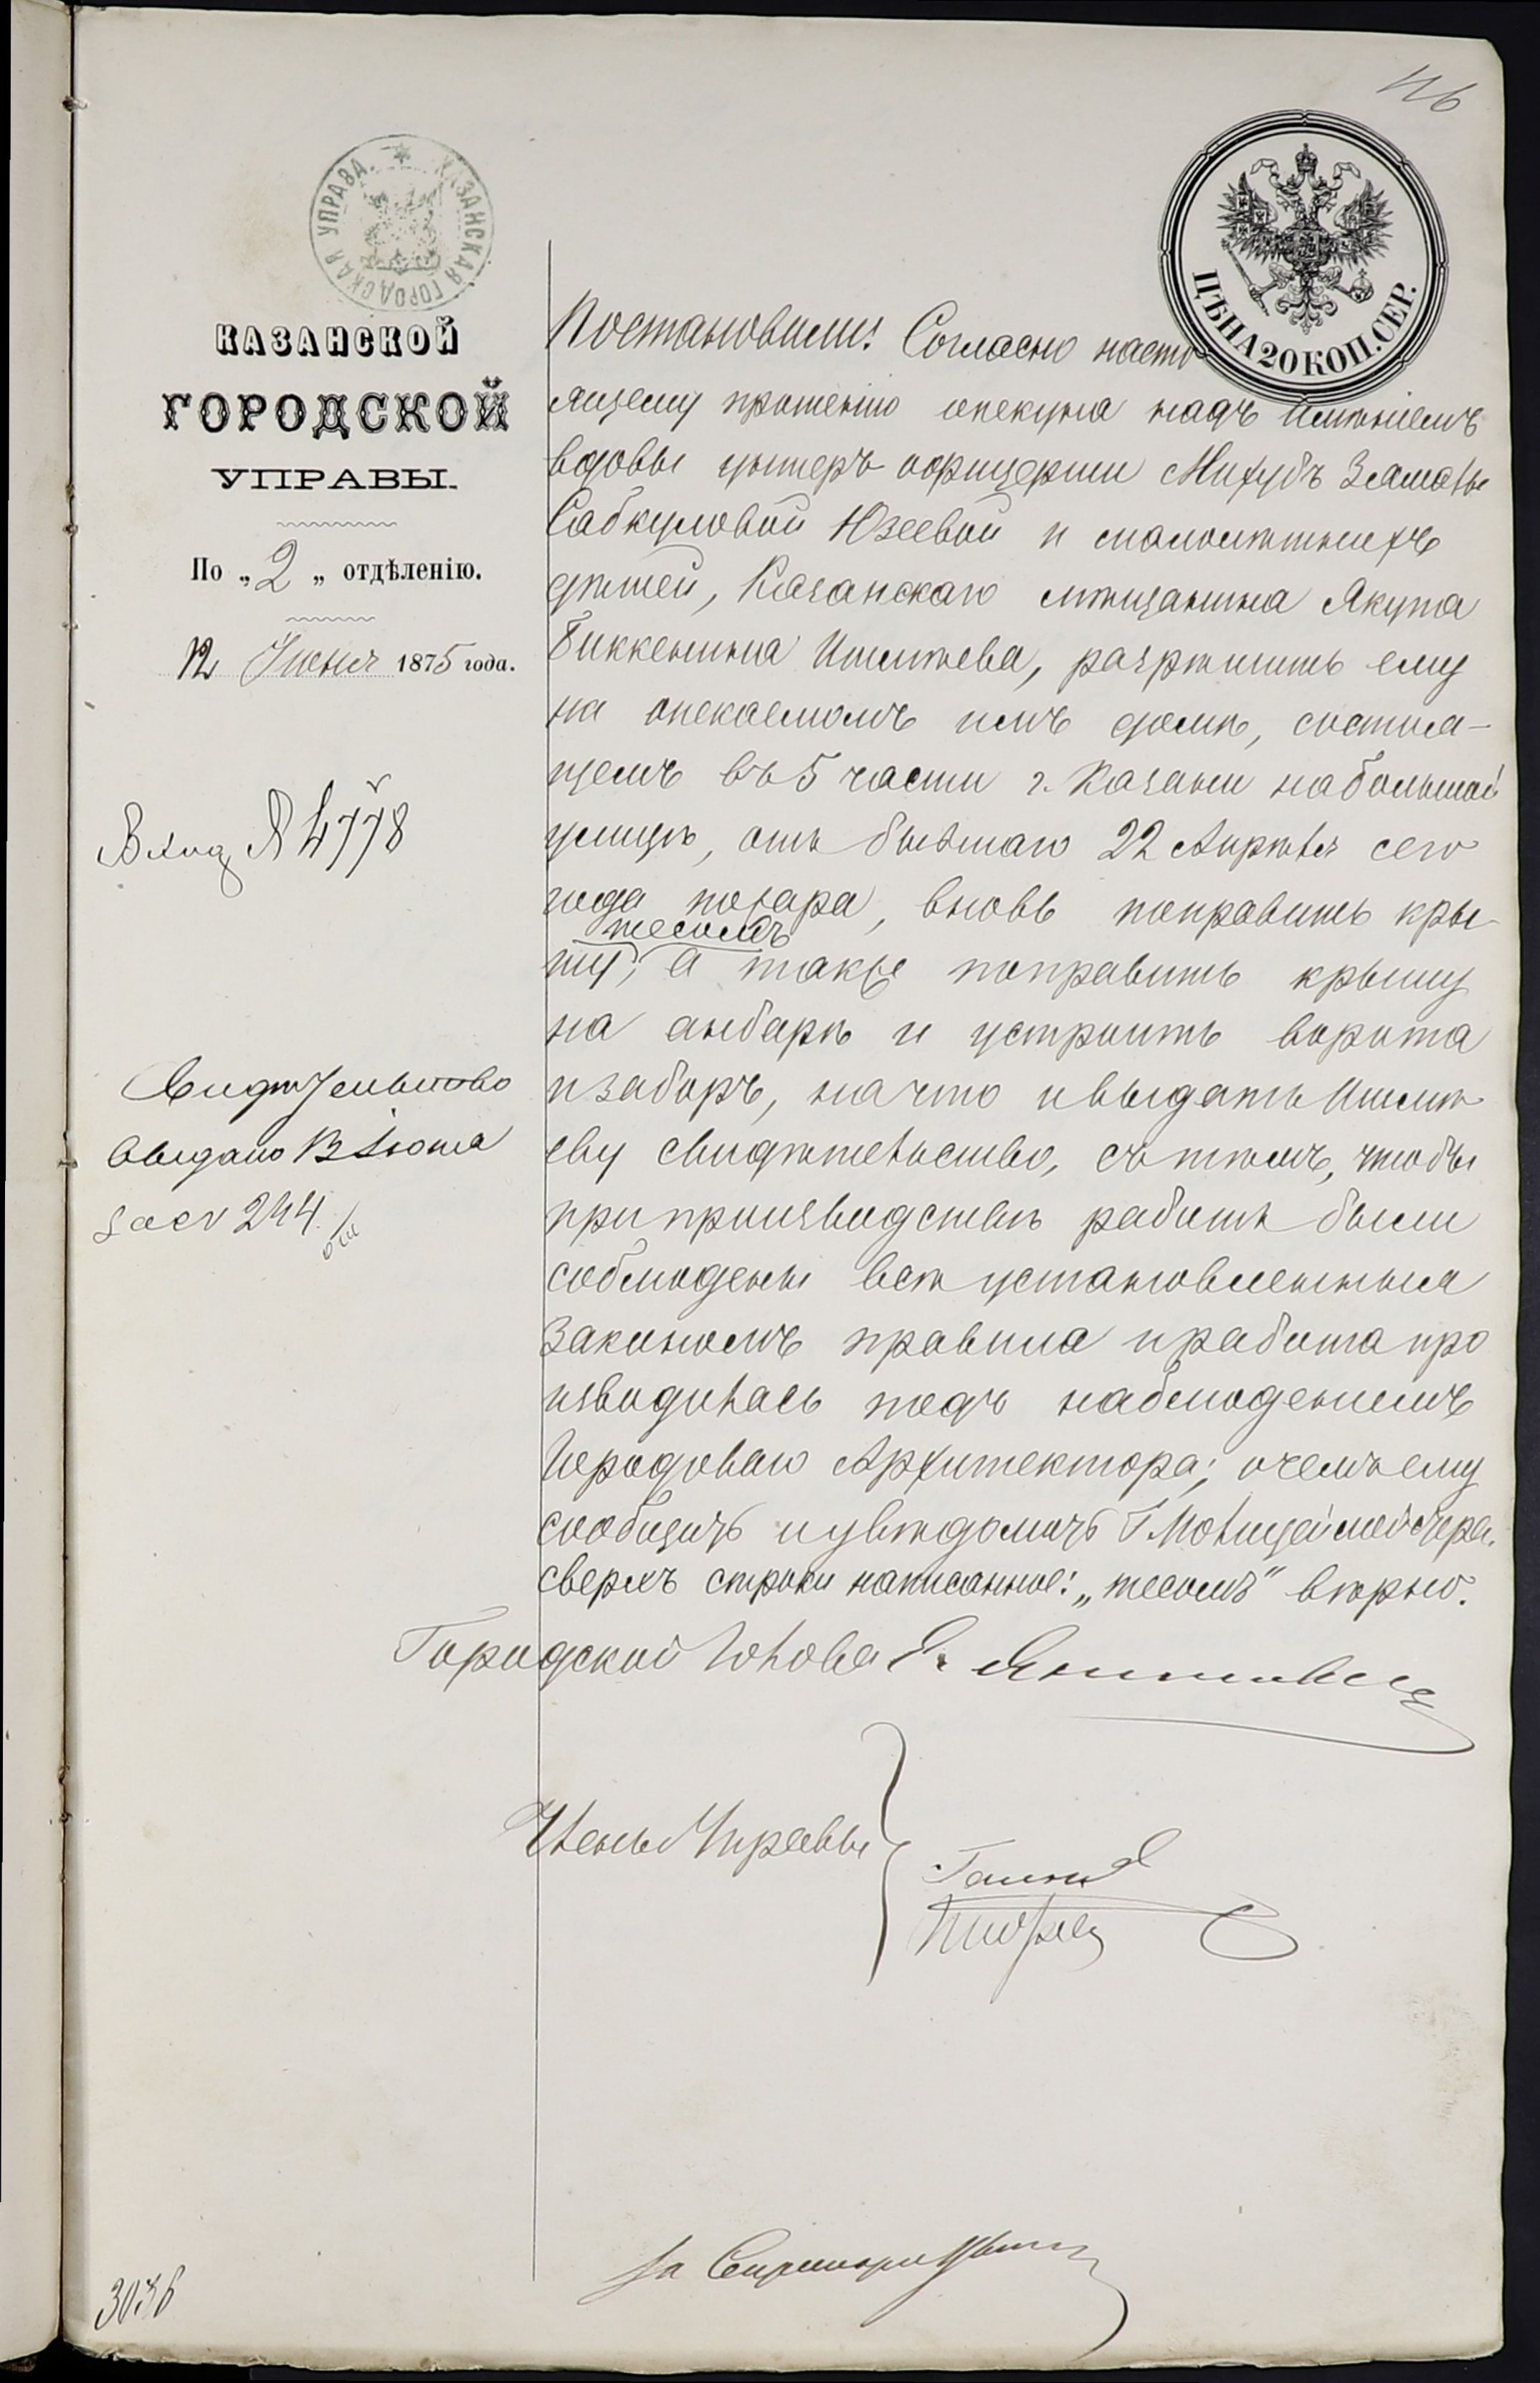 116
КАЗАНСКАЯ ГОРОДСКАЯ УПРАВА
ЦѢНА 20 КОП. СЕР.
КАЗАНСКОЙ
ГОРОДСКОЙ
УПРАВЫ.
По „2„ отдѣленію.
12 Іюня 1875 года.
Вход № 4778
Свидѣтельство
выдано 13 Іюня
за № 244.
Постановили: Согласно насто
ящему прошенію опекуна надъ имѣніемъ
вдовы унтеръ-офицерши Махубъ Замалы
Сабкуловой Юзеевой и малолѣтнихъ
дѣтей, Казанскаго мѣщанина Якупа
Биккенина Ишмѣева, разрѣшить ему
на опекаемомъ имъ домѣ, состоя-
щемъ въ 5 части г. Казани на большой
улицѣ, отъ бывшаго 22 Апрѣля сего
года пожара, вновь поправить кры-
тесомъ
шу, а также поправить крышу
на анбарѣ и устроить ворота
и заборъ, на что и выдать Ишмѣ-
еву свидѣтельство, съ тѣмъ, чтобы
при производствѣ работъ были
соблюдены всѣ установленныя
закономъ правила и работа про
изводилась подъ наблюденіемъ
Городоваго Архитектора; о чемъ ему
сообщить и увѣдомить Г. Полицеймейстера.
сверхъ строки написанное: „тесомъ" вѣрно.
Городской Голова Э. Янишевскій
Члены Управы
За Секретаря
3036